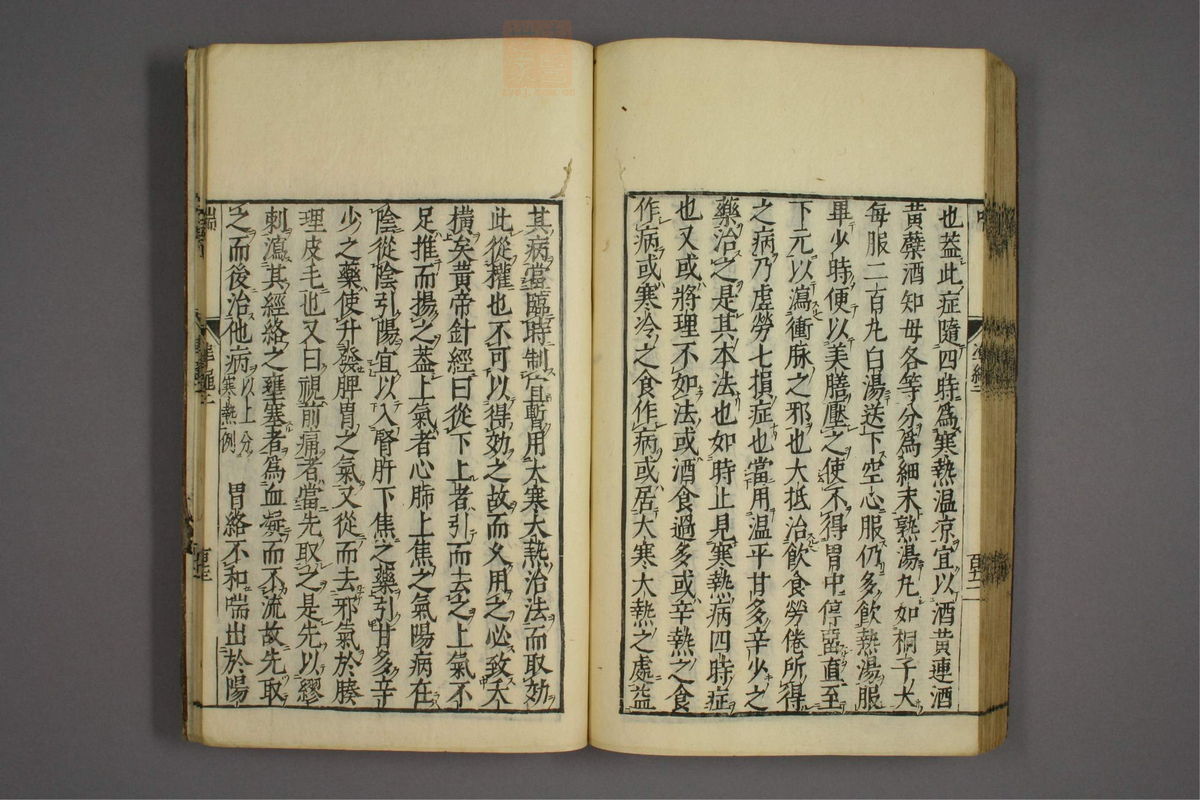 也蓋此症隨四時爲寒熱温凉宜以酒黄連酒
黄蘗酒知母各等分爲細末熟湯丸如桐子大
每服二百丸白湯送下空心服仍多飲熱湯服
畢少時便以美膳壓之使不得胃中停留直至
下元以瀉衝脉之邪也大抵治飲食勞倦所得
之病乃虚勞七損症也當用温平甘多辛少之
藥治之是其本法也如時止見寒熱病四時症
也又或將理不如法或酒食過多或辛熱之食
作病或寒冷之食作病或居大寒大熱之處益
其病當臨時制宜暫用大寒大熱治法而取効
此從權也不可以得効之故而久用之必致大
橫矣黄帝針經曰從下上者引而去之上氣不
足推而揚之蓋上氣者心肺上焦之氣陽病在
陰從陰引陽宜以入腎肝下焦之藥引甘多辛
少之藥使升發脾胃之氣又從而去邪氣於腠
理皮毛也又曰視前痛者當先取之是先以繆
刺瀉其經絡之壅塞者爲血凝而不流故先取
之而後治他病以上分寒熱例 胃絡不和喘出於陽